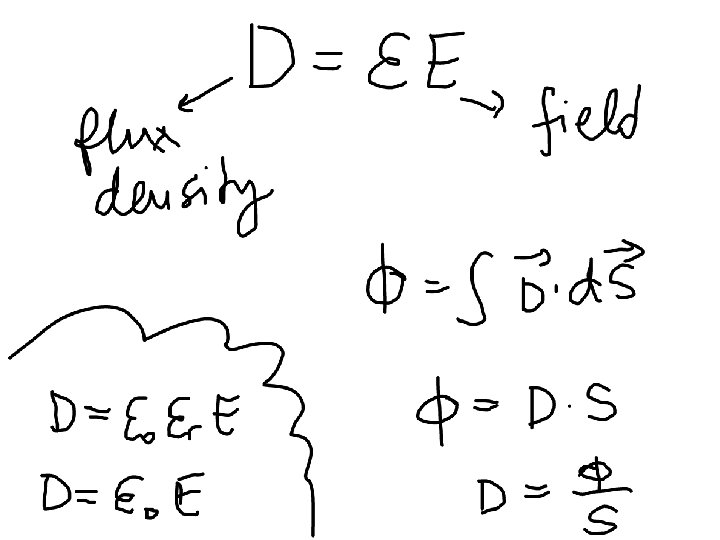 D = εE
flux
density
field
ϕ = ∫ D⃗ · dS⃗
D = ε₀ εᵣ E
D = ε₀ E
ϕ = D · S
D = ϕ/S